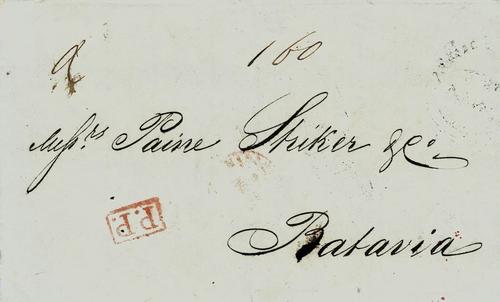 160
Messrs Paine Striker & Co.
Batavia
P.P.